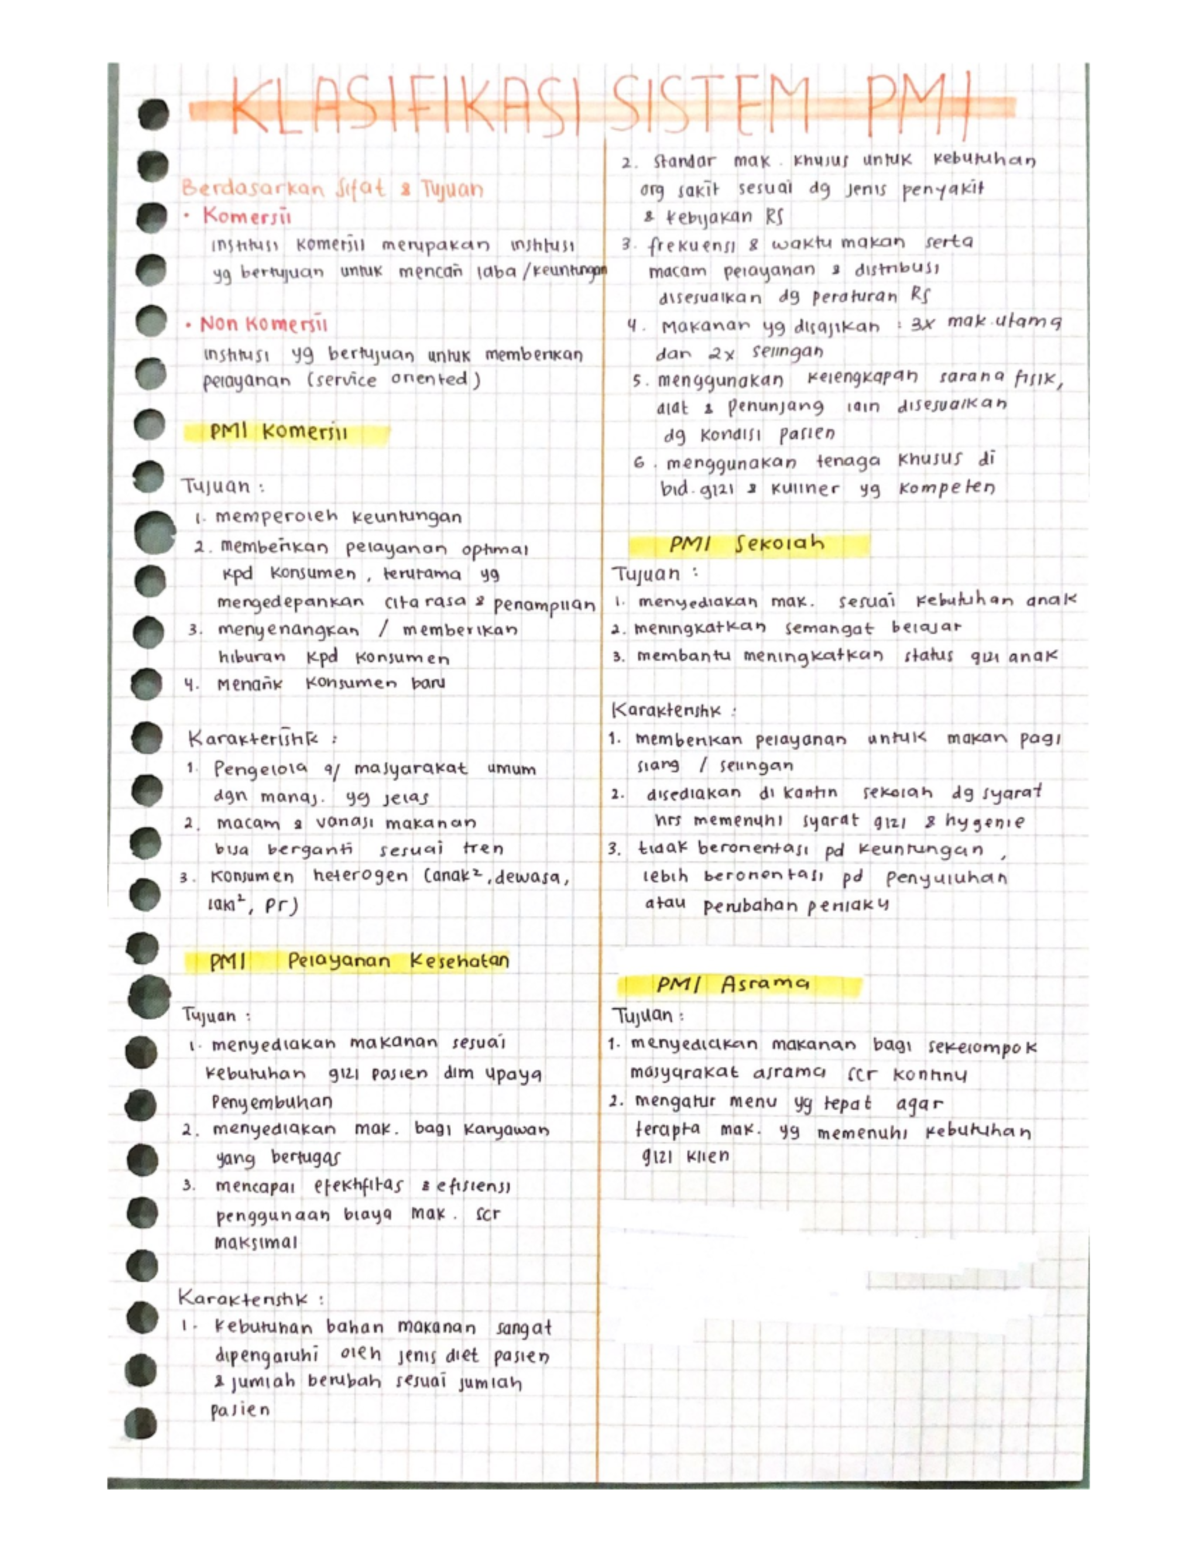 KLASIFIKASI SISTEM PMI
Berdasarkan Sifat & Tujuan
• Komersil
institusi komersil merupakan institusi
yg bertujuan untuk mencari laba/keuntungan
• Non Komersil
institusi yg bertujuan untuk memberikan
pelayanan (service oriented)
PMI Komersil
Tujuan :
1. memperoleh keuntungan
2. memberikan pelayanan optimal
kpd konsumen, terutama yg
mengedepankan cita rasa & penampilan
3. menyenangkan / memberikan
hiburan kpd konsumen
4. Menarik konsumen baru
Karakteristik :
1. Pengelola a/ masyarakat umum
dgn manaj. yg jelas
2. macam & variasi makanan
bisa berganti sesuai tren
3. Konsumen heterogen (anak², dewasa,
laki², pr)
PMI Pelayanan Kesehatan
Tujuan :
1. menyediakan makanan sesuai
kebutuhan gizi pasien dlm upaya
penyembuhan
2. menyediakan mak. bagi karyawan
yang bertugas
3. mencapai efektifitas & efisiensi
penggunaan biaya mak. scr
maksimal
Karakteristik :
1. kebutuhan bahan makanan sangat
dipengaruhi oleh jenis diet pasien
& jumlah berubah sesuai jumlah
pasien
2. Standar mak. khusus untuk kebutuhan
org sakit sesuai dg jenis penyakit
& kebijakan RS
3. frekuensi & waktu makan serta
macam pelayanan & distribusi
disesuaikan dg peraturan RS
4. Makanan yg disajikan : 3x mak.utama
dan 2x selingan
5. menggunakan kelengkapan sarana fisik,
alat & penunjang lain disesuaikan
dg kondisi pasien
6. menggunakan tenaga khusus di
bid. gizi & kuliner yg kompeten
PMI Sekolah
Tujuan :
1. menyediakan mak. sesuai kebutuhan anak
2. meningkatkan semangat belajar
3. membantu meningkatkan status gizi anak
Karakteristik :
1. memberikan pelayanan untuk makan pagi
siang / selingan
2. disediakan di kantin sekolah dg syarat
hrs memenuhi syarat gizi & hygenie
3. tidak berorientasi pd keuntungan,
lebih berorientasi pd penyuluhan
atau perubahan perilaku
PMI Asrama
Tujuan :
1. menyediakan makanan bagi sekelompok
masyarakat asrama scr kontinu
2. mengatur menu yg tepat agar
tercipta mak. yg memenuhi kebutuhan
gizi klien